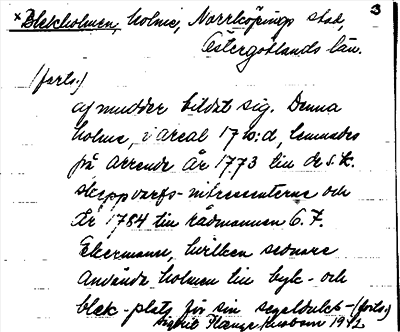 3
× Blekholmen, holme, Norrköpings stad,
Östergötlands län.
(forts.)
af mudder bildat sig. Denna
holme, i areal 17 , lemnades
på arrende år 1773 till de s.k.
skeppsvarfs-intressenterne och
år 1784 till rådmannen C. F.
Ekermann, hvilken sednare
använde holmen till byk- och
blek-plats för sin segelduk- (forts.)
1912